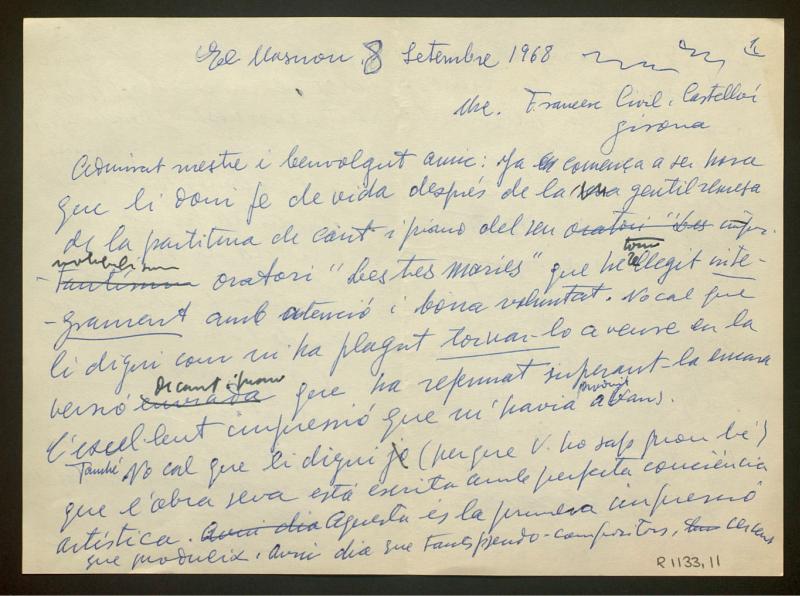 El Masnou, 8 Setembre 1968
1
Mtre. Francesc Civil i Castellví
Girona
Admirat mestre i benvolgut amic: Ja comença a ser hora
que li doni fe de vida després de la gentil remesa
de la partitura de cant i piano del seu oratori "Les impor-
notabilíssim
-tantíssim oratori "Les tres Maries" que he rellegit ínte-
torno
-grament amb atenció i bona voluntat. No cal que
li digui com m'ha plagut tornar-lo a veure en la
de cant i piano
versió enviada que ha refermat superant-la encara
l'excel·lent impressió que m'havia produït abans.
També No cal que li digui jo (perque V. ho sap prou bé)
que l'obra seva está escrita amb perfecta conciència
artística. Avui dia Aquesta és la primera impressió
que produeix. Avui dia que tants pseudo-compositors, cerquen
R 1133, 11